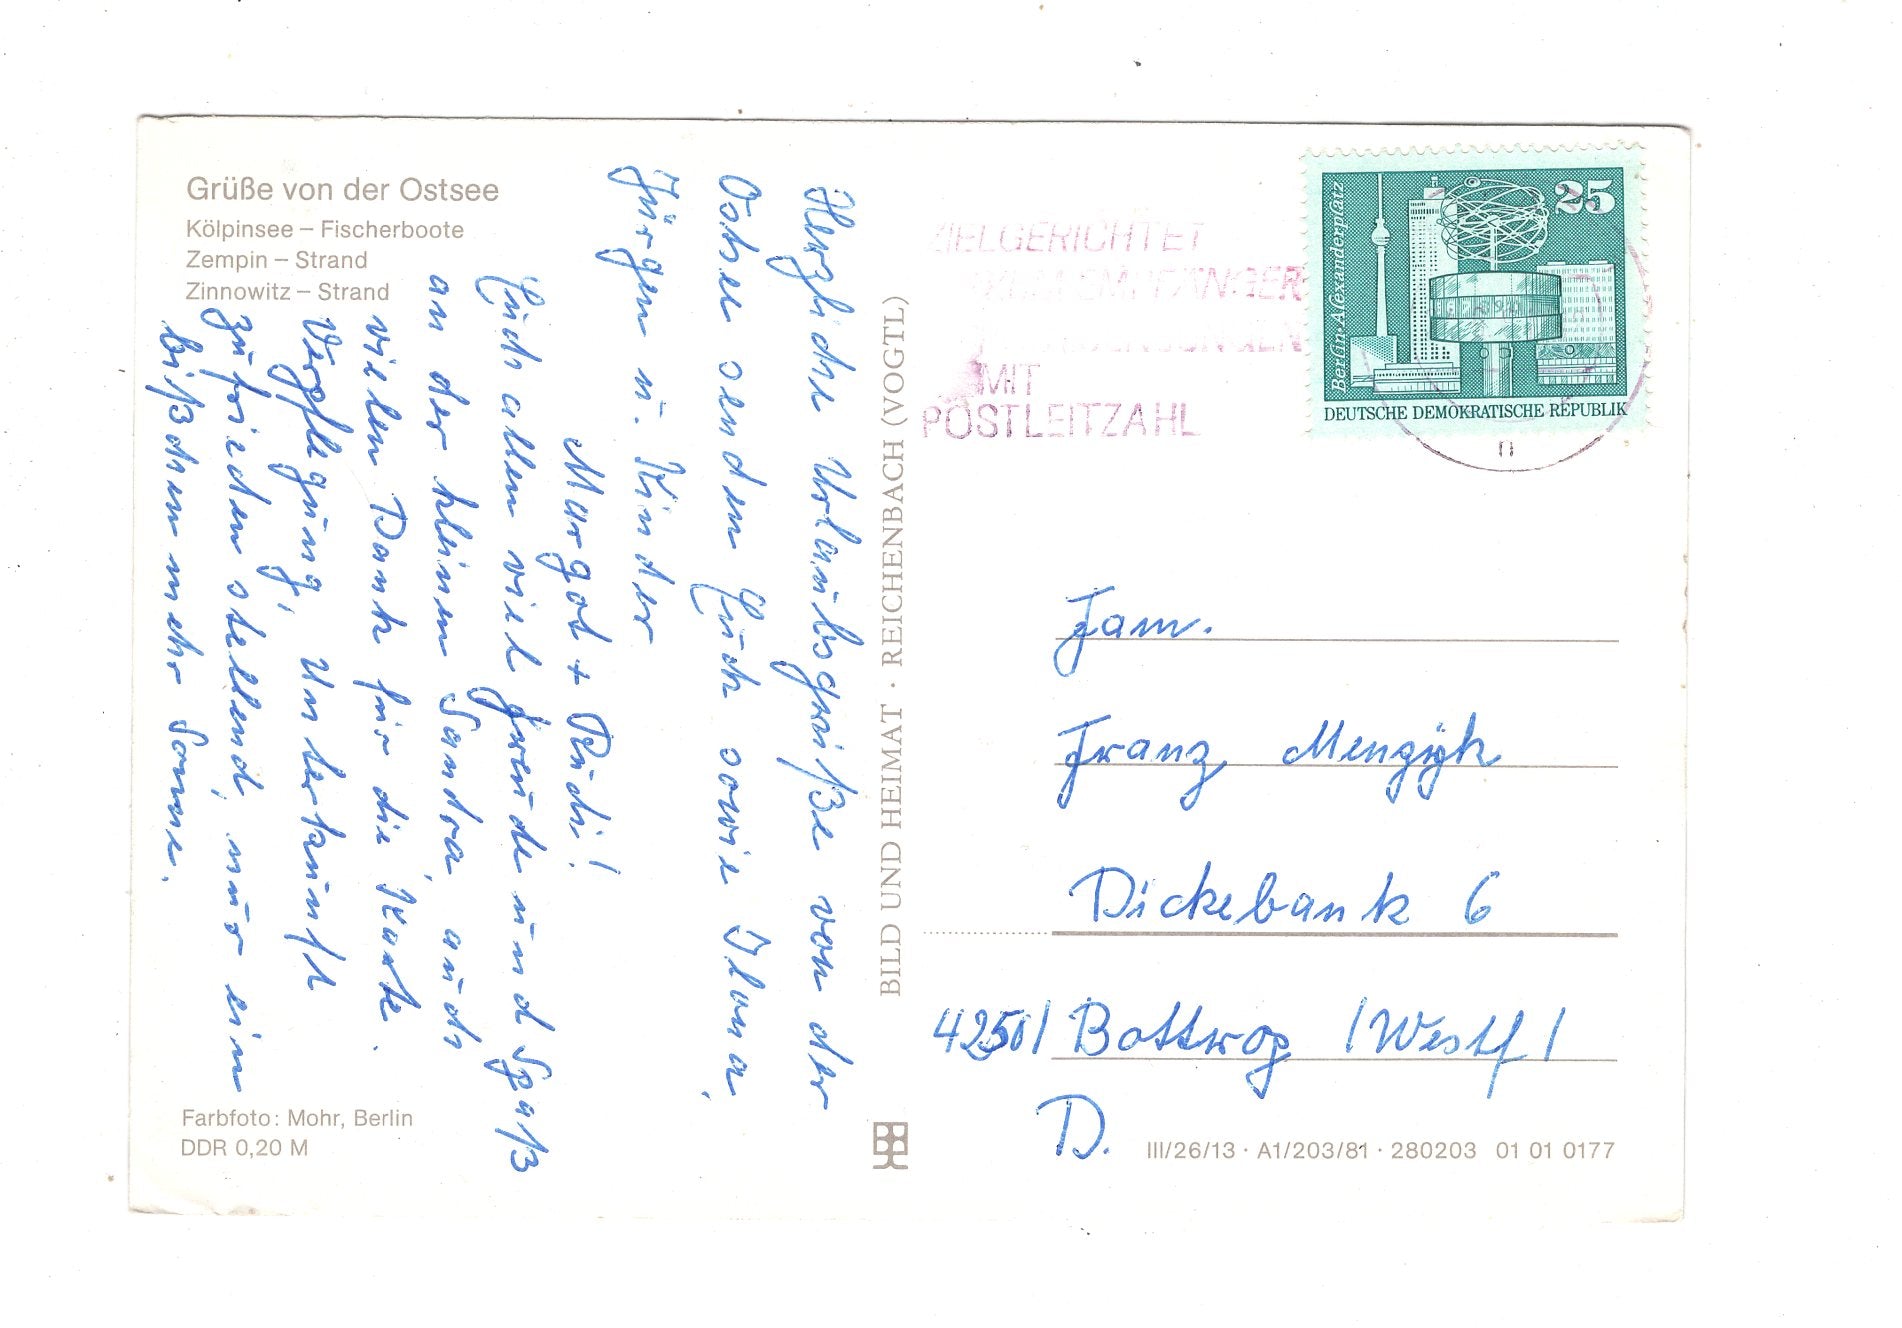 Grüße von der Ostsee
Kölpinsee – Fischerboote
Zempin – Strand
Zinnowitz – Strand
Herzliche Urlaubsgrüße von der
Ostsee senden Euch sowie Ilona,
Jürgen u. Kinder
Margot + Rudi!
Euch allen viel Freude und Spaß
an der kleinen Sandra, auch
vielen Dank für die Karte.
Verpflegung, Unterkunft
zufriedenstellend, nur ein
bißchen mehr Sonne.
Farbfoto: Mohr, Berlin
DDR 0,20 M
BILD UND HEIMAT · REICHENBACH (VOGTL)
ZIELGERICHTET
ZUM EMPFÄNGER
MIT
POSTLEITZAHL
Berlin-Alexanderplatz
25
DEUTSCHE DEMOKRATISCHE REPUBLIK
Fam.
Franz Menzyk
Dickebank 6
4250/ Bottrop /Westf/
D.
III/26/13 · A1/203/81 · 280203 01 01 0177